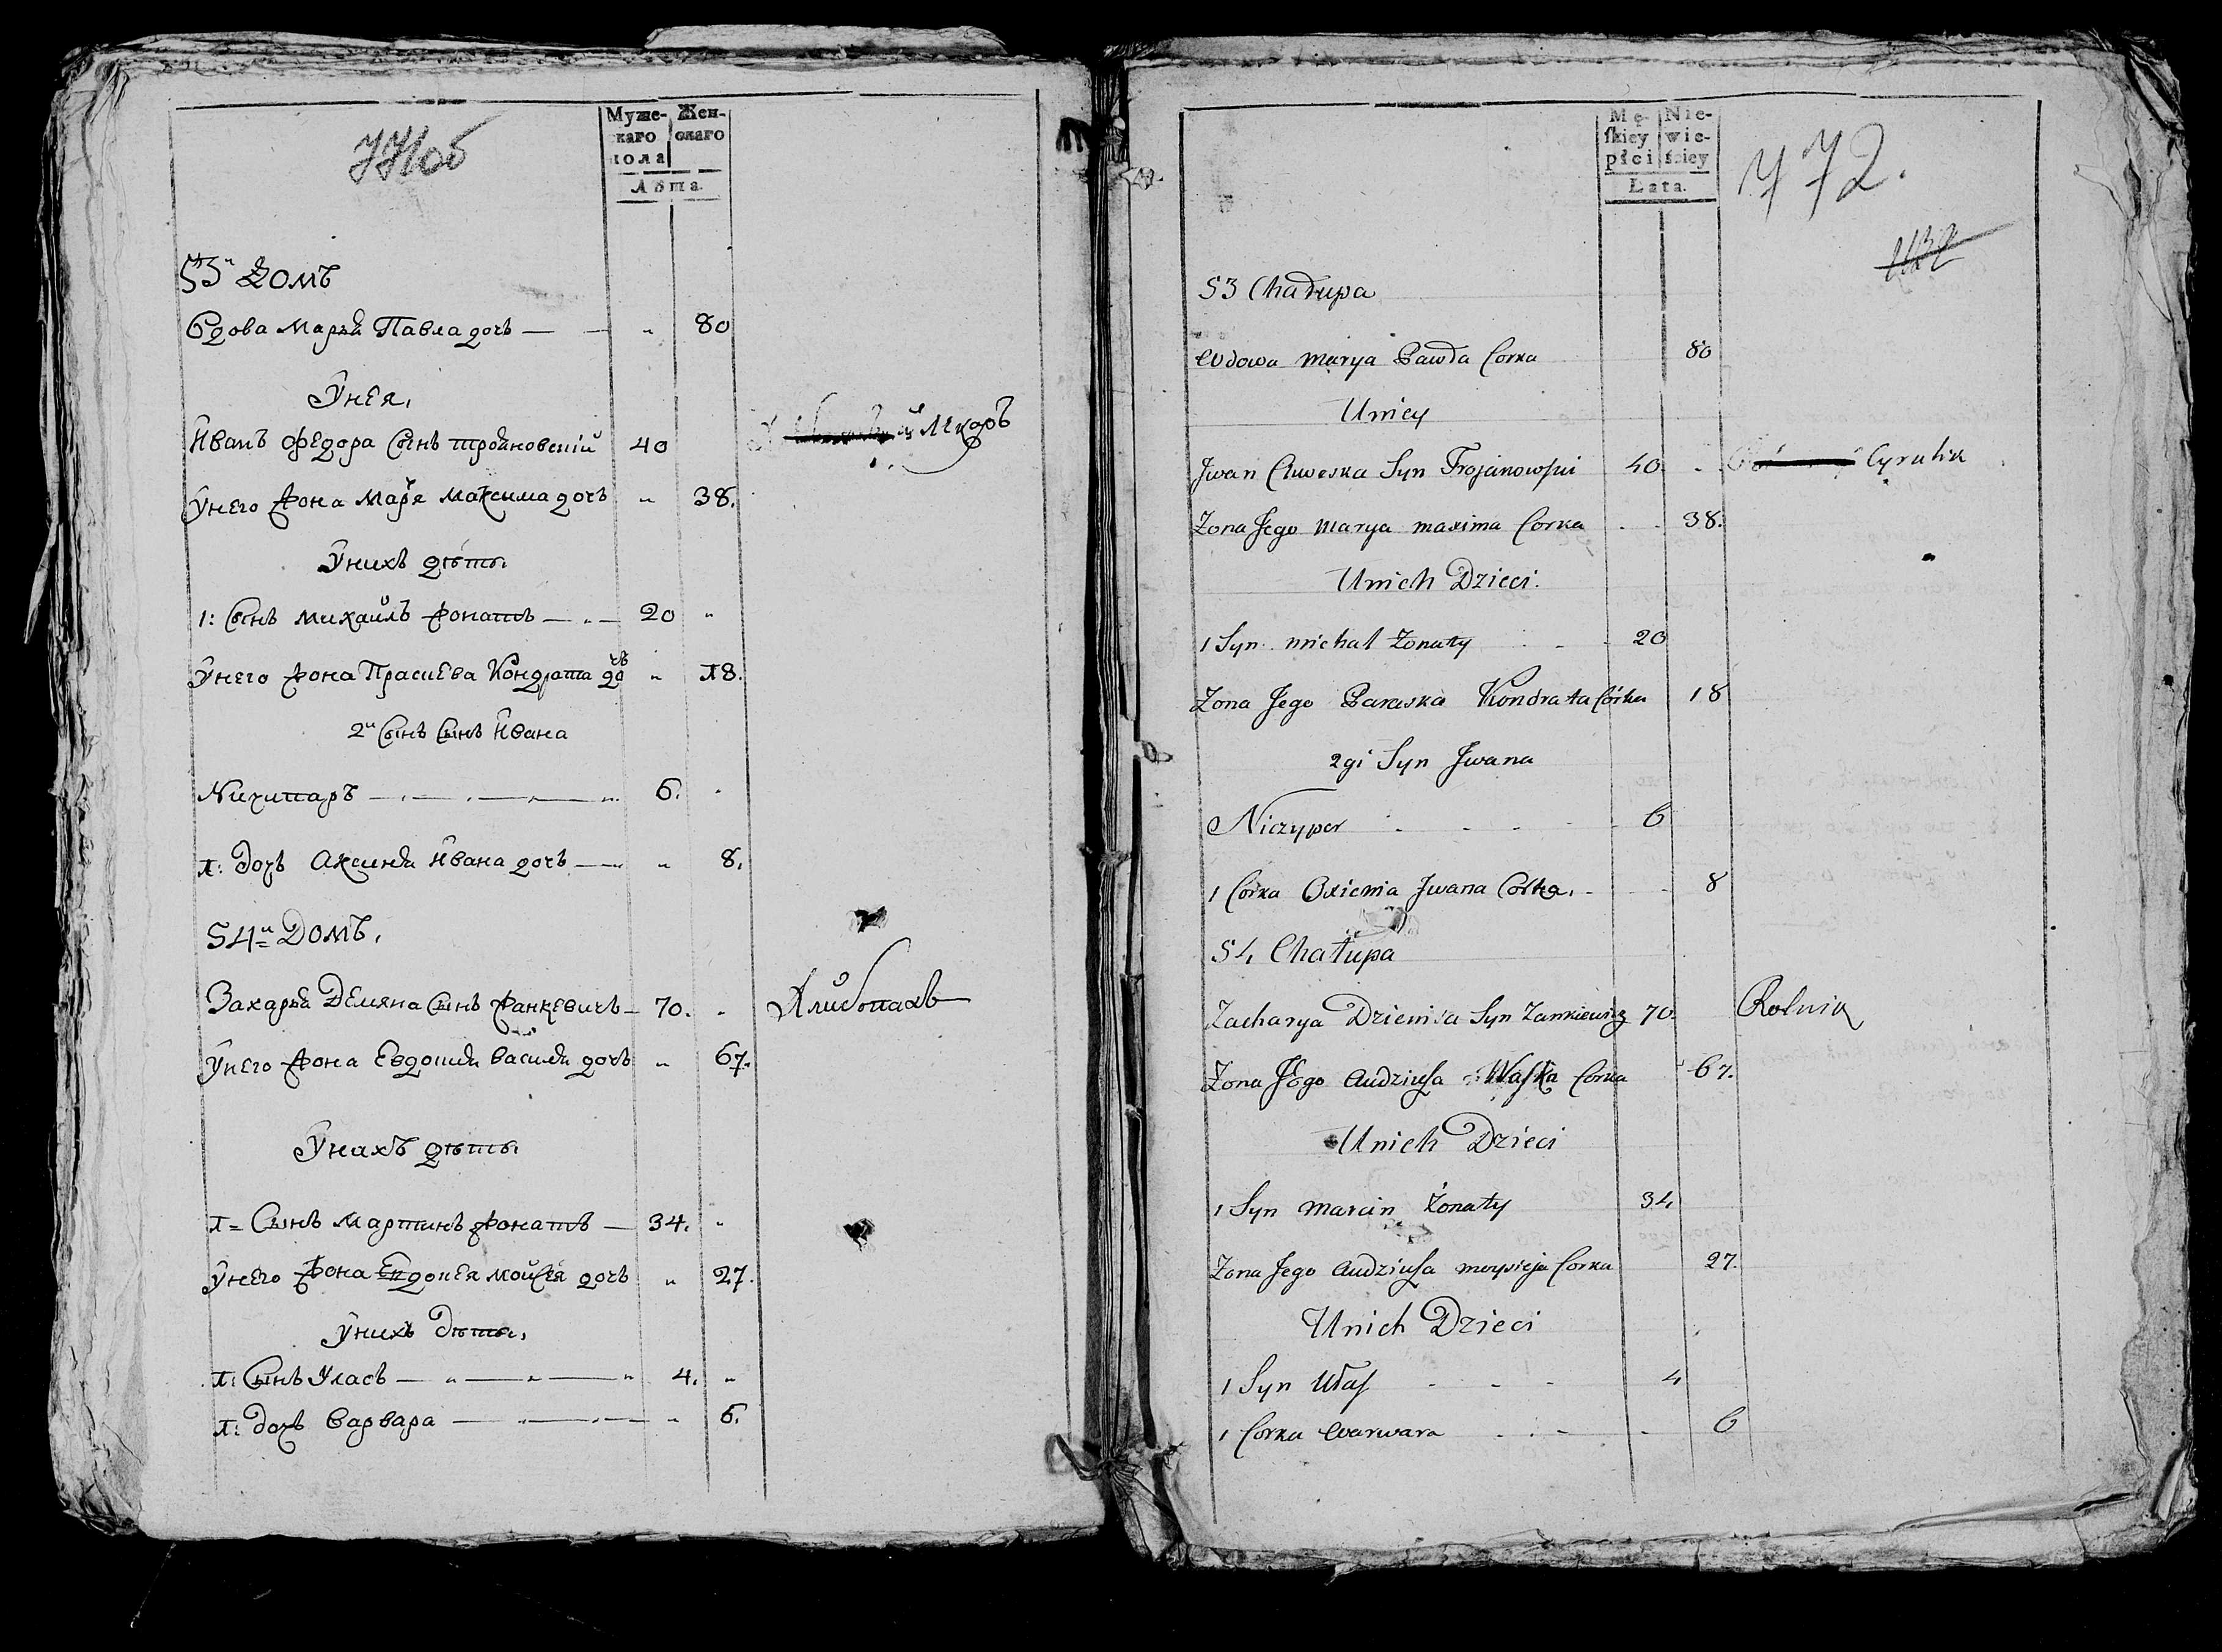 771об
Муже-
скаго
пола
Жен-
скаго
Лѣта.
53й Домъ
Вдова Марья Павла дочь 80
У нея,
Иванъ Федора Сынъ трояновский 40 Лекарь
У него Жона Марья Максима дочь 38.
У нихъ дѣты
1: Сынъ Михайлъ жонатъ 20
У него жона Прасцева Кондрата дочь 18.
2й Сынъ Сынъ Ивана
Ничипаръ 6.
1: Дочь Аксинья Ивана дочь 8.
54й Домъ,
Захарья Демяна Сынъ Жанкевичъ 70. Хлибопахъ
У него Жона Евдокия Василья дочь 67.
У нихъ дѣты
1= Сынъ Мартинъ жонатъ 34.
У него Жона Евдокея Мойсея дочь 27.
У нихъ Дѣты,
1: Сынъ Уласъ 4.
1: Дочь Варвара 6.
Mę-
skiey
płci
Nie-
wie-
ściey
Lata.
772.
53 Chałupa
Wdowa Marya Pawła Corka 80
Uniey
Jwan Chweska Syn Trojanowski 40 Cyrulik
Zona Jego Marya maxima Corka 38.
Unich Dzieci.
1 Syn michal Zonaty 20
Zona Jego Paraska Kondrata Córka 18
2gi Syn Jwana
Niczypor 6
1 Córka Oxienia Jwana Córka. 8
54 Chałupa
Zacharya Dziemia Syn Zankiewicz 70. Rolnik
Zona Jego Audziusa Waska Corka 67.
Unich Dzieci
1 Syn Marcin Żonaty 34
Zona Jego Audziusa moysieja Corka 27.
Unich Dzieci
1 Syn Ułas 4
1 Corka Warwara 6